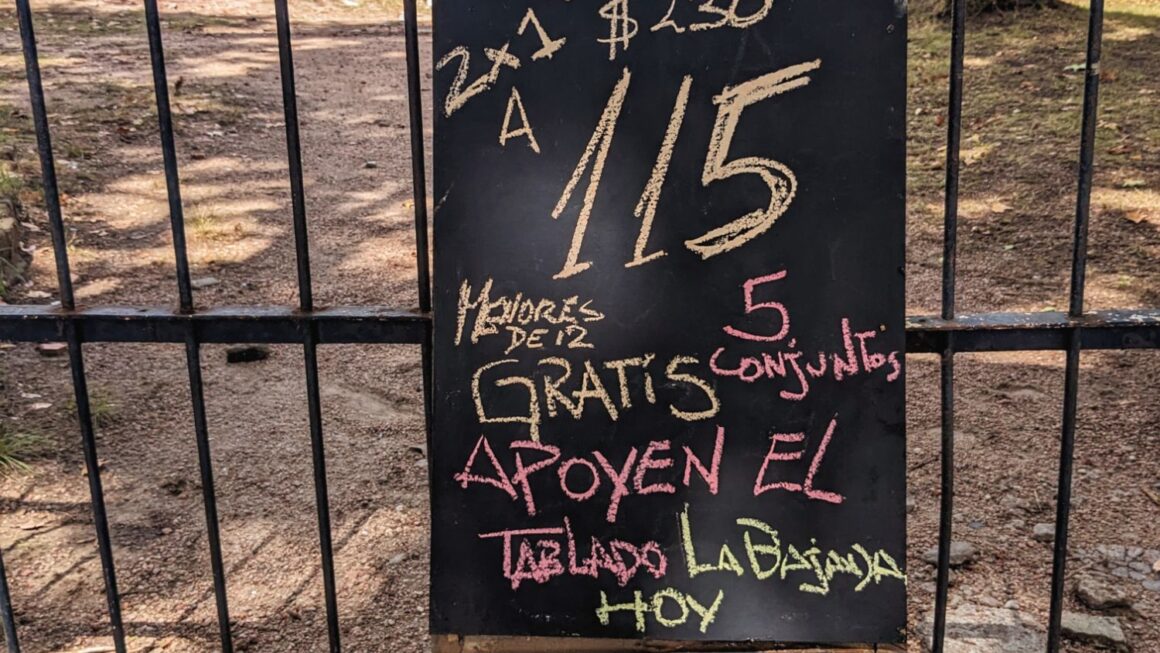 $ 230
2x1
A
115
MENORES
DE 12
GRATIS
5
CONJUNTOS
APOYEN EL
TABLADO LA BAJADA
HOY